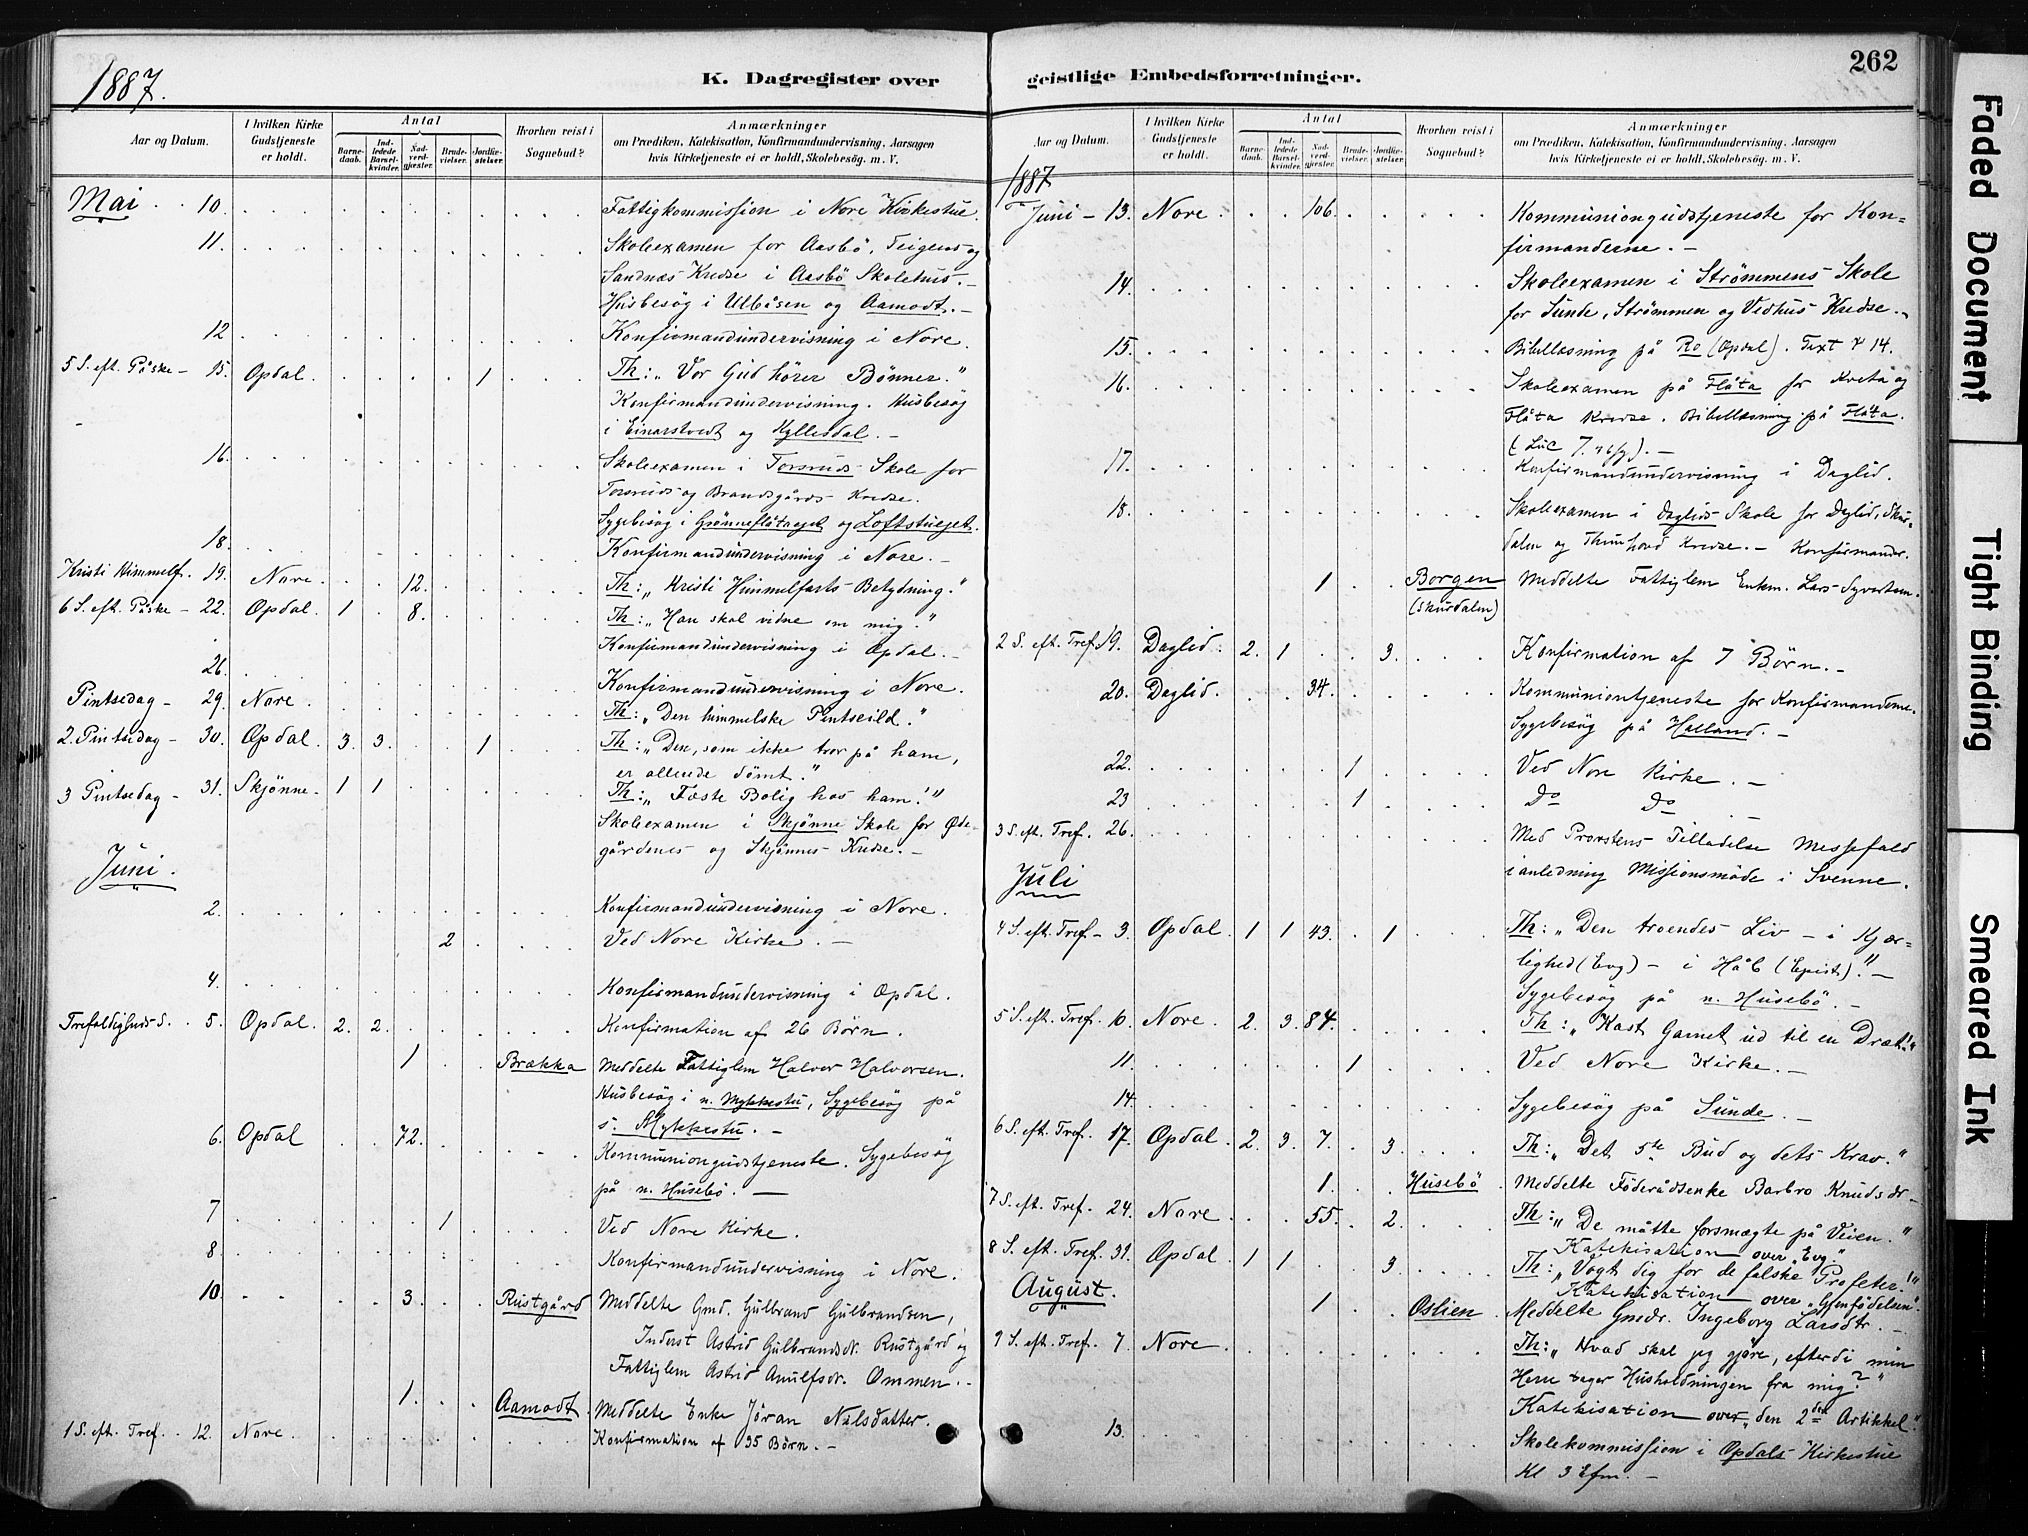 1887.
K. Dagregister over
Aar og Datum.
I hvilken Kirke Gudstjeneste er holdt.
Antal
Barne-daab.
Ind-ledede Barsel-kvinder.
Nad-verd-gjæster.
Brude-vielser.
Jordfæ-stelser.
Hvorhen reist i Sognebud?
Anmærkninger
om Prædiken, Katekisation, Konfirmandundervisning, Aarsagen
hvis Kirketjeneste ei er holdt, Skolebesøg. m. V.
Mai 10. Fattigkommission i Nore Kirkestue.
11. Skoleexamen for Aasbö, Teigens og
Sandnæs Kredse i Aasbö Skolehus.-
Husbesøg i Ulbåsen og Aamodt.-
12 Konfirmandundervisning i Nore.
5 S. eft. Påske - 15. Opdal. 1 Th: „Vor Gud hörer Bönner."
Konfirmandundervisning. Husbesøg
i Einarstvedt og Kyllesdal.-
16. Skoleexamen i Torsruds Skole for
Torsruds og Brandsgårds Kredse.
Sygebesög i Grønneflåtaejet og Loftstuejet.
18. Konfirmandundervisning i Nore.-
Kristi Himmelf. 19. Nore. 12. Th: „Kristi Himmelfarts Betydning."
6 S. eft. Påske - 22. Opdal. 1 8. Th: „Han skal vidne om mig."
Konfirmandundervisning i Opdal.-
26. Konfirmandundervisning i Nore.
Pintsedag - 29. Nore. Th: „Den himmelske Pintseild."
2. Pintsedag - 30. Opdal. 3. 3. 1 Th: „Den, som ikke tror på ham,
er allerede dömt."
3 Pintsedag - 31. Skjönne. 1 1 Th: „Fæste Bolig hos ham!"
Skoleexamen i Skjönne Skole for Øde-
gårdenes og Skjönnes Kredse.-
Juni.
2. Konfirmandundervisning i Nore.
2 Ved Nore Kirke.-
4. Konfirmandundervisning i Opdal.
Trefoldigheds S. 5. Opdal. 2. 2. Konfirmation af 26 Börn.
1 Brækka Meddelte Fattiglem Halvor Halvorsen.
Husbesög i n. Mykkestu, Sygebesög på
s. Mykkestu.-
6. Opdal 72. Kommuniongudstjeneste. Sygebesög
på n. Husebö.-
7 1 Ved Nore Kirke.
8 Konfirmandundervisning i Nore.
10 3. Rustgård Meddelte Gmd. Gulbrand Gulbrandsen,
Inderst Astrid Gulbrandsdr. Rustgård og
Fattiglem Astrid Arnulfsdr. Ommen.-
1. Aamodt. Meddelte Enke Jöran Nilsdatter.
1 S. eft. Tref. 12. Nore. Konfirmation af 35 Börn.-
262
geistlige Embedsforretninger.
Aar og Datum.
I hvilken Kirke Gudstjeneste er holdt.
Antal
Barne-daab.
Ind-ledede Barsel-kvinder.
Nad-verd-gjæster.
Brude-vielser.
Jordfæ-stelser.
Hvorhen reist i Sognebud?
Anmærkninger
om Prædiken, Katekisation, Konfirmandundervisning, Aarsagen
hvis Kirketjeneste ei er holdt, Skolebesøg. m. V.
1887
Juni - 13. Nore. 106. Kommuniongudstjeneste for Kon-
firmanderne.-
14. Skoleexamen i Strömmens Skole
for Sunde, Strömmen og Vidhus Kredse.-
15. Bibellæsning på Ro (Opdal). Text 14.
16. Skoleexamen på Flåta for Kvetå og
Flåta Kredse. Bibellæsning på Flåta.
(Luc 7. ).-
17. Konfirmandundervisning i Daglid.
18. Skoleexamen i Daglids Skole for Daglid, Skur-
dalen og Thunhovd Kredse.- Konfirmandr.
1 Borgen Meddelte Fattiglem Enkm. Lars Syvertsen.
(Skurdalen)
2 S. eft. Tref. 19. Daglid. 2. 1 3. Konfirmation af 7 Börn.-
20. Daglid. 34. Kommuniontjeneste for Konfirmanderne.
Sygebesög på Halland.-
22. 1 Ved Nore Kirke.-
23 1 Do Do
3 S. eft. Tref. 26. Med Provstens Tilladelse Messefald
i anledning Missionsmöde i Svenne.
Juli
4 S. eft. Tref. - 3. Opdal. 1 1 43. 1 Th: „Den troendes Liv - i Kjær-
lighed (Evg) - i Håb (Epist)."-
Sygebesög på n. Husebö.-
5 S. eft. Tref. 10. Nore. 2. 3. 84. Th: „Kast Garnet ud til en Dræt!"
11. 1 Ved Nore Kirke.-
14. Sygebesög på Sunde.-
6 S. eft. Tref. 17. Opdal. 2. 3. 7. 3. Th: „Det 5te Bud og dets Krav."
1. Husebö Meddelte Föderådsenke Barbro Knudsdr-
7 S. eft. Tref. 24. Nore. 55. 2. Th: „De måtte forsmægte på Veien."
Katekisation over Evg."
8 S. eft. Tref. 31. Opdal. 1 1 3. Th: „Vogt dig for de falske Profeter!"
Katekisation over „Gjenfödelsen".
August.
1 Oslien Meddelte Gmdr. Ingeborg Larsdtr.-
9 S. eft. Tref. 7. Nore Th: „Hvad skal jeg gjöre, efterdi min
Herre tager Husholdningen fra mig?"
Katekisation over „den 2den Artikkel."
13. Skolekommission i Opdals Kirkestue
Kl 3 Efm.-
Faded Document
Tight Binding
Smeared Ink